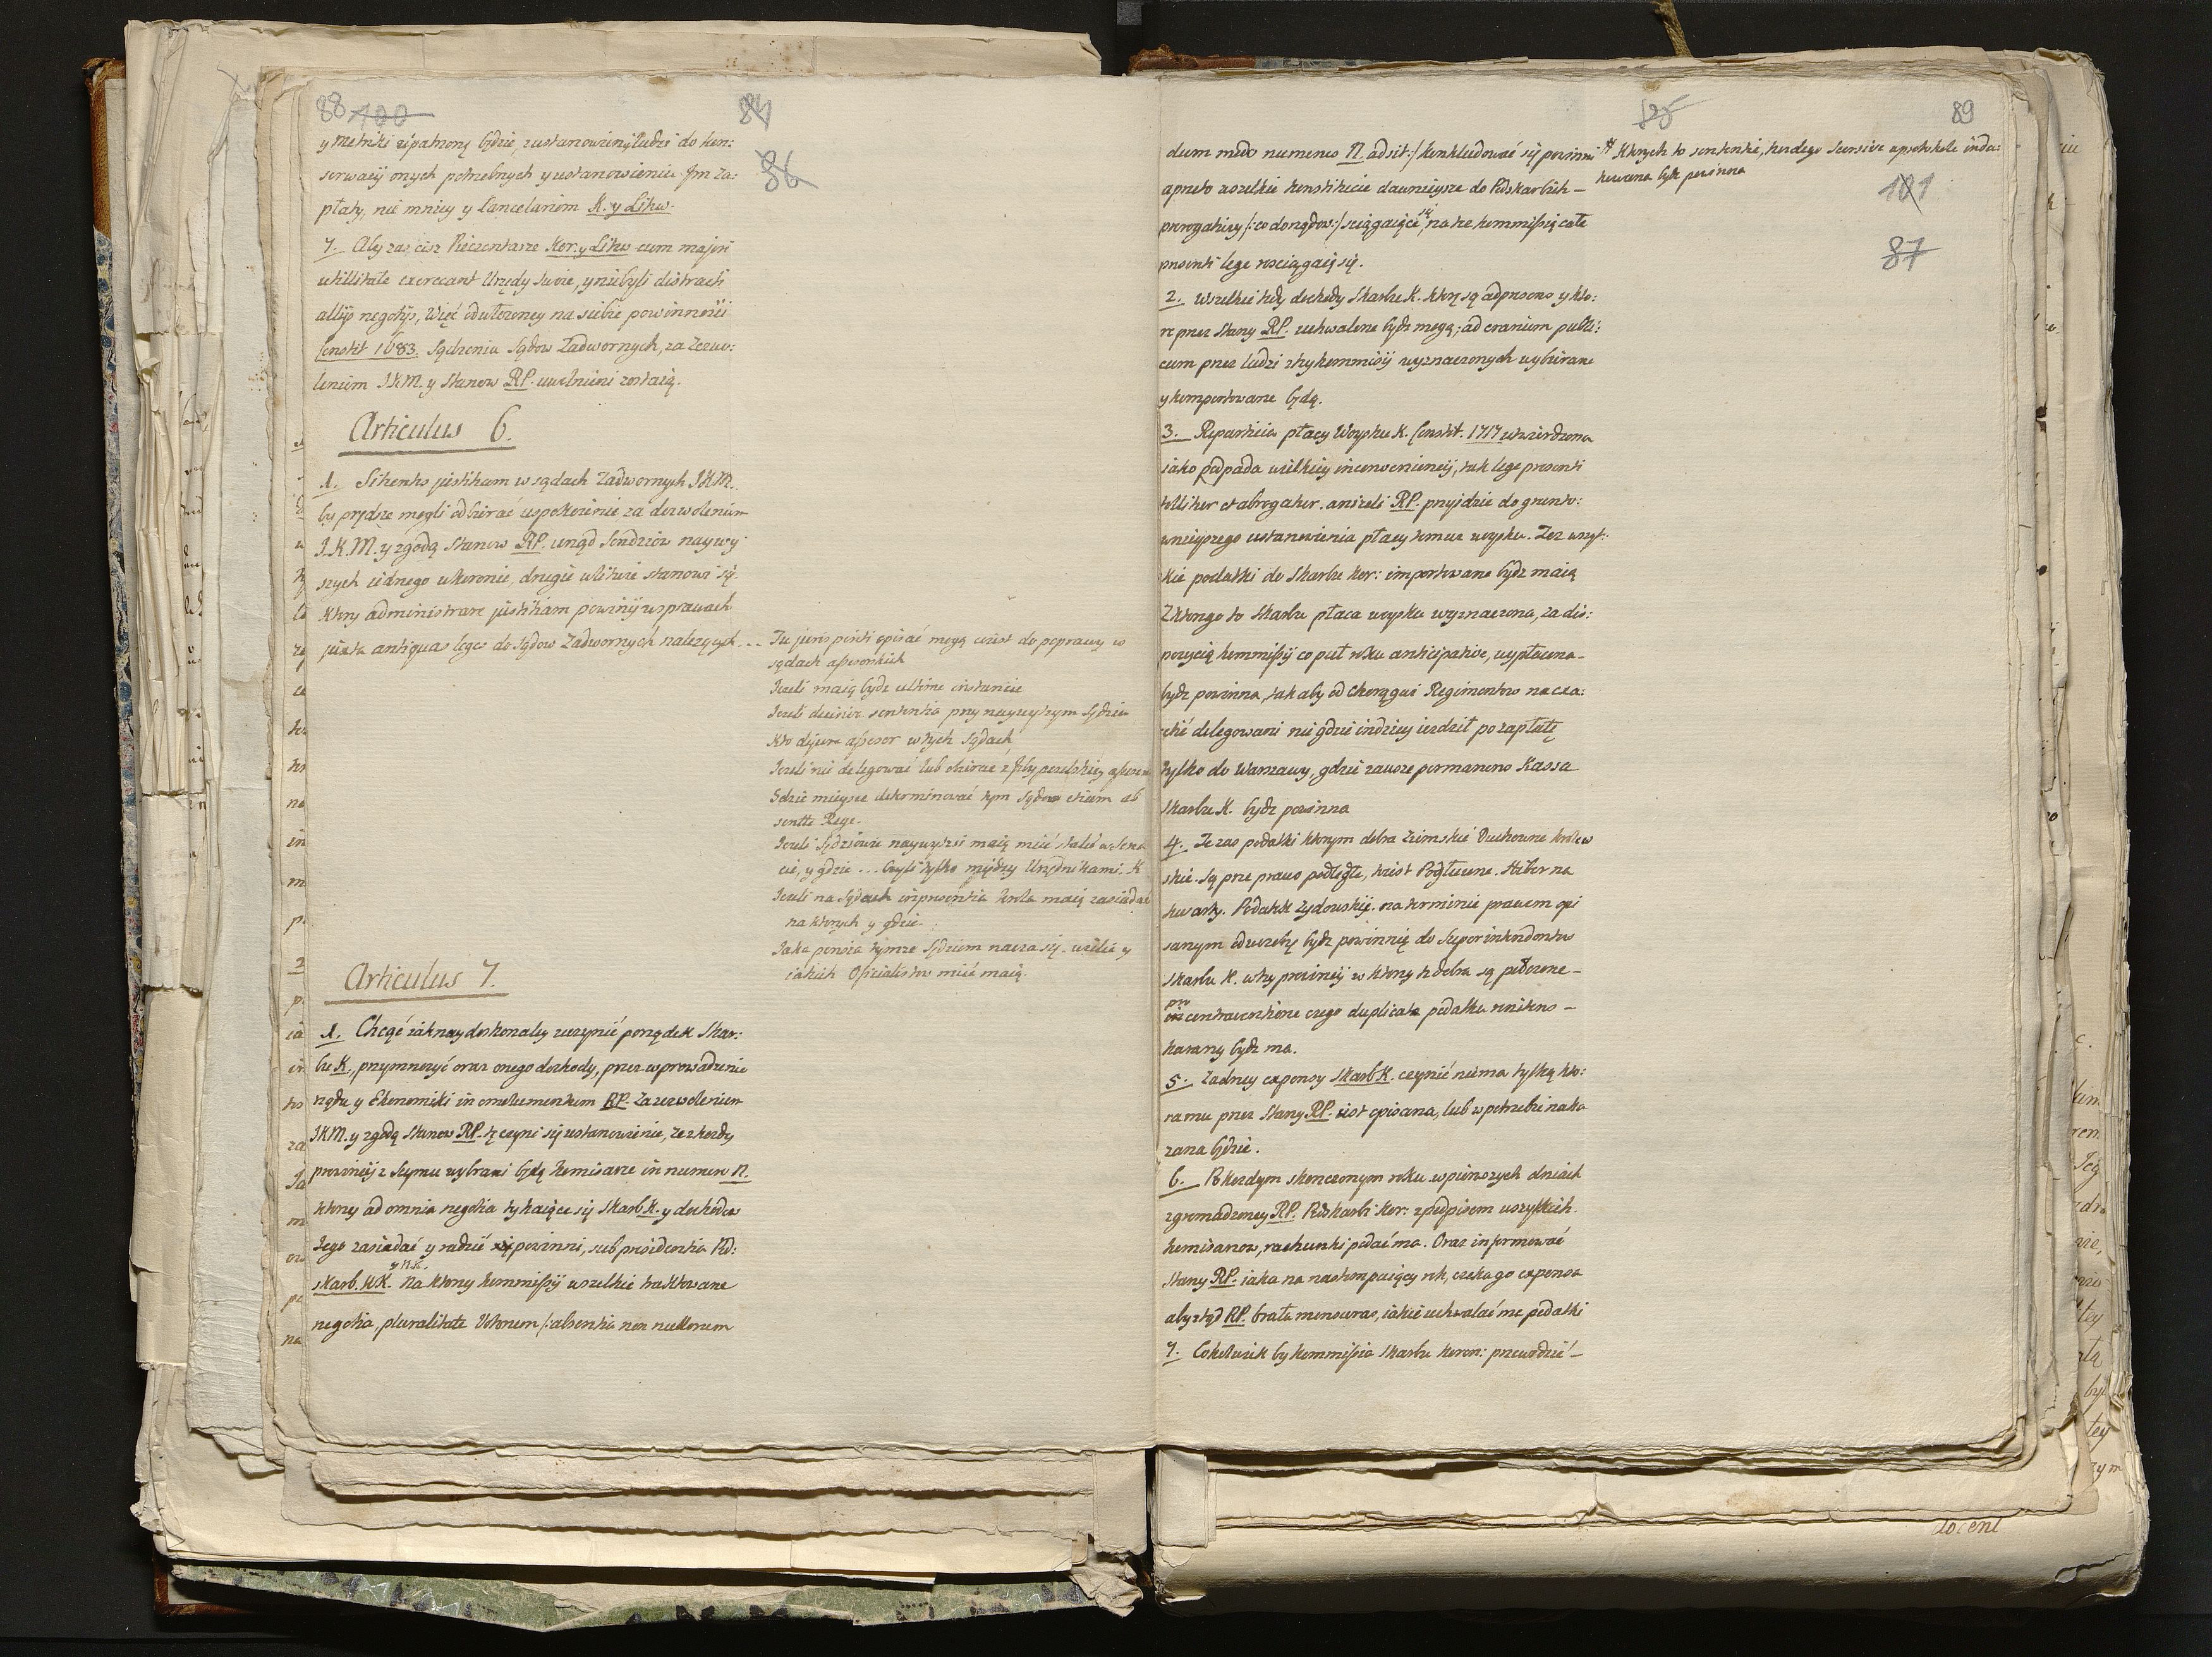 88 100
84
86
y Metriki zápatrzony będzie, zustanowieniem ludzi do kon:
serwacij onych potrzebnych y ustanowieniu Jm za:
płaty, nie mniey y Cancelariom K. y Litw.
7. Aby zas ciż Pieczentarze Kor. y Litw cum majori
utillitate exerceant Urzędy swoie, y niebyli distracti
alijs negotijs, Więc od włożoney na siebie powinności
Constit 1683. Sądzenia Sądow Zadwornych, za zezwo:
leniem JKM. y Stanow RP. uwolnieni zostaią.
Articulus 6.
1. Sitientes justitiam w sądach Zadwornych JKM.
by prędze mogli odbierać uspokoienie za dozwoleniem
J.K.M. y zgodą Stanow RP. urząd Sendziow naywy
szych iednego wkoronie, drugie wlitwie stanowi się.
Ktory administrare justitiam powinij wsprawach
juxta antiquas leges do sądow Zadwornych należących ...
Tu juris periti opisać mogą coiest do poprawy w
sądach assesorskich
Jezeli maią bydz ultime instancie
Jezeli decisiva sententia przy naywyszym Sędzim
Kto de jure assesor wtych Sądach
Jezeli nie delegować lub obierac z Jzby poselskiey assesorow
Gdzie mieysce determinować tym Sądom etiam ab
sentte Rege.
Jezeli Sędziowie naywyzsi maią mieć stałość w Sena
cie, y gdzie ... Czyli tylko między Urzędnikami K
Jezeli na Sądach inpresentia krola maią zasiadać
na ktorych y gdzie.
Jaka pensia tymze Sędziom naznaczy się. wiele y
iakich Oficialistow mieć maią.
Articulus 7.
1. Chcąc iaknaydoskonaley uczynić porządek Skar:
bu K., przymnożyć oraz onego dochody, przez wprowadzenie
rządu y Ekonomiki in emolumentum RP. Za zezwoleniem
JKM. y zgodą Stanow RP. tę czyni się ustanowienie, ze zkozdy
prowincij z Seymu wybrani będą Komisarze in numero N.
ktorzy ad omnia negotia tykaiące się Skarb K. y dochodow
Jego zasiadać y radzić powinni, sub presidentia Pod:
y N.L.
skarb. W.K. Na ktorey kommissij wszelkie traktowane
negotia, pluralitate Votorum /: absentia non nullorum
89
101
87
dum modo numerus N. adsit:/ konkludować się powinni
# Ktorych to sentencie, kozdego Scersive w protokole indu:
kowana byc powinna
a przeto wszelkie konstitucie dawnieysze do Podskarbich —
prerogatiwy /: co do rządow:/ sciągaiące się, na te kommissię całe
presenti lege rosciągaią się.
2. Wszelkie tedy dochody Skarbu K. ktory są ad presens y kto:
re przez stany RP. uchwalone bydz mogą; ad erarium publi:
cum przez ludzi z tey kommissij wyznaczonych wybierane
y komportowane będą.
3. Reparticia płacy Woysku K. Constit. 1717 utwierdzona
iako podpada wielkiey inconvenienciy, tak lege presenti
tollitur et abrogatur. anizeli RP. przyidzie do grunto:
wnieyszego ustanowienia płacy temuz woysku. Zez wszyt:
kie podatki do Skarbu Kor: importowane bydz maią
Z ktorego to Skarbu płaca woysku wyznaczona, za dis:
pozycią kommissij co puł roku anticipative, wypłacona—
bydz powinna, tak aby od chorągwi Regimentow na cza:
chi delegowani nie gdzie indziey iezdzil po zapłatę
tylko do Warszawy, gdzie zawsze permanens Kassa
Skarbu K. bydz powinna
4. Te zas podatki ktorym dobra Ziemskie Duchowne krolew
skie. Są prze prawo podległe, toiest Pogłuwne. Hiberna
kwarty. Podatek zydowskij. na terminie prawem opi
sanym odwozby bydz powinnię do Superintendentow
Skarbu K. wtey prowincij w ktory te dobra są położone—
pro
in contraventione czego duplicata podatku renitens —
karany bydz ma.
5. Zadney expensy Skarb K. czynić niema tylką kto:
ra mu przez stany RP. iest opisana, lub w potrzebie naka
zana będzie.
6. Po kozdym skonczonym roku w pierwszych dniach
zgromadzoney RP. Podskarbi Kor: z podpisem wszytkich
komisarzow, rachunki podać ma. Oraz informować
stany RP. iaka na nastempuiący rok, czeka go expensa
aby ztąd RP. brała mensuras, iakie uchwalać ma podatki
7. Cokolwiek by kommissia Skarbu koron: przewidzić —
docent